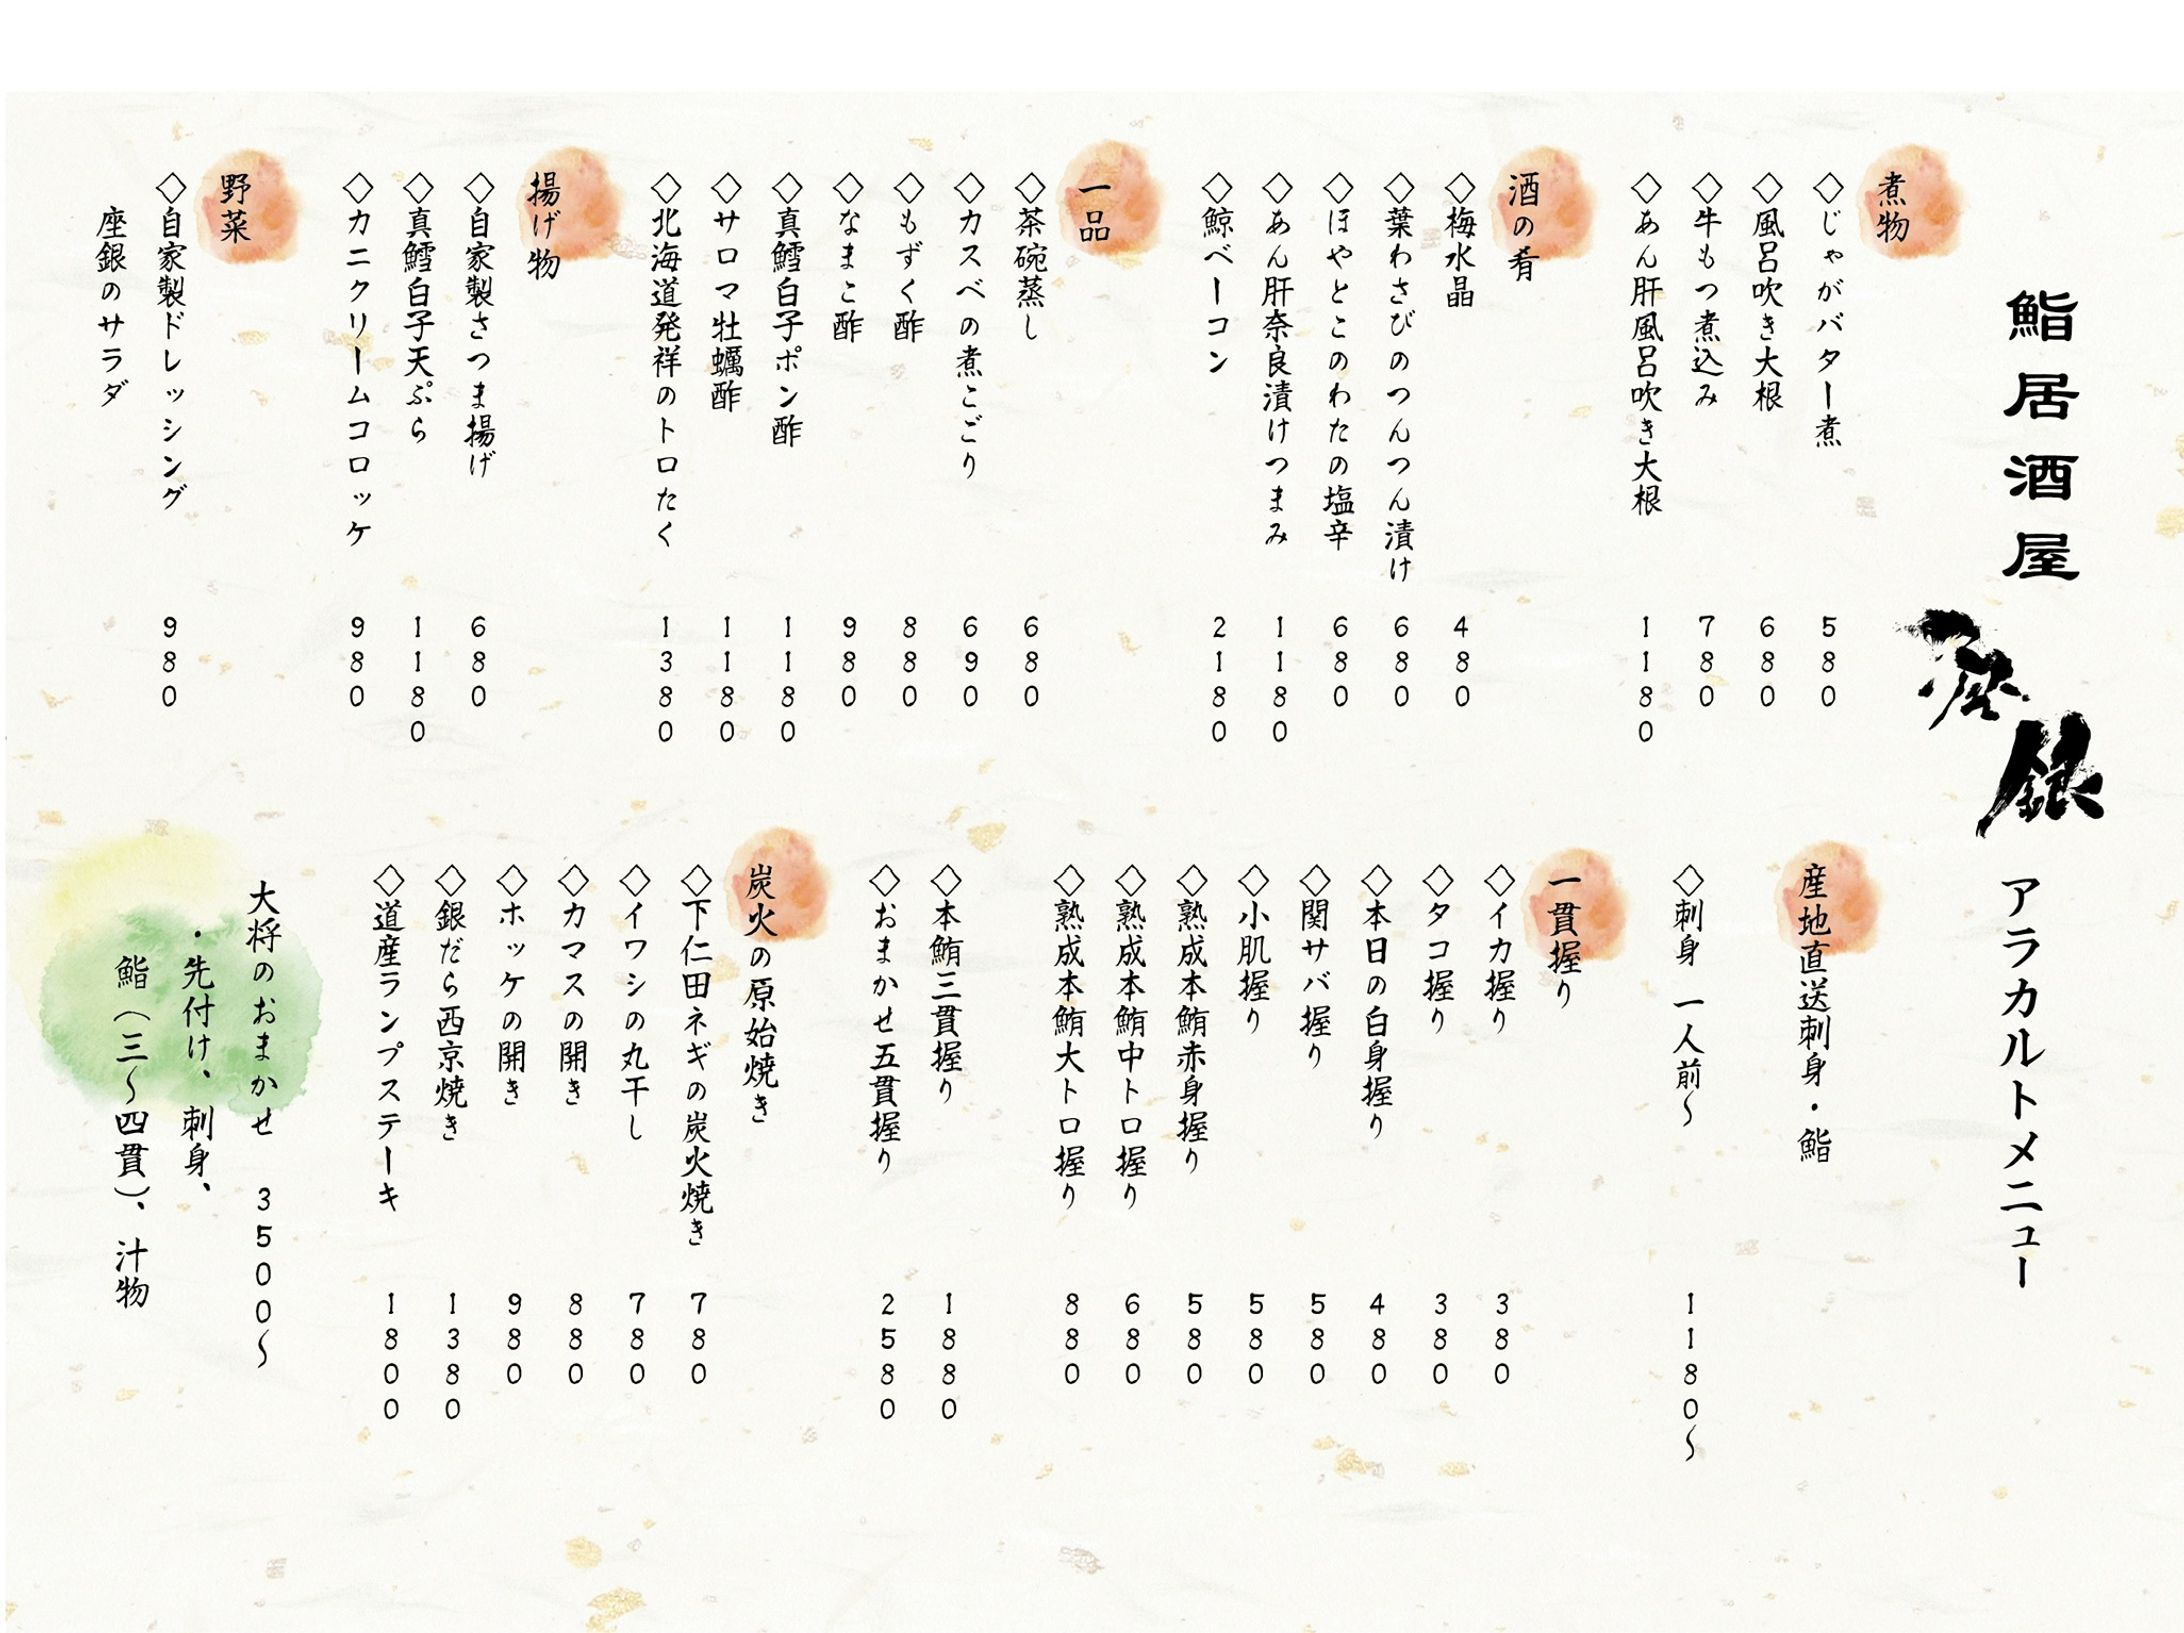 鮨居酒屋
座銀
アラカルトメニュー
煮物
◇じゃがバター煮 580
◇風呂吹き大根 680
◇牛もつ煮込み 780
◇あん肝風呂吹き大根 1180
酒の肴
◇梅水晶 480
◇葉わさびのつんつん漬け 680
◇ほやとこのわたの塩辛 680
◇あん肝奈良漬けつまみ 1180
◇鯨ベーコン 2180
一品
◇茶碗蒸し 680
◇カスベの煮こごり 690
◇もずく酢 880
◇なまこ酢 980
◇真鱈白子ポン酢 1180
◇サロマ牡蠣酢 1180
◇北海道発祥のトロたく 1380
揚げ物
◇自家製さつま揚げ 680
◇真鱈白子天ぷら 1180
◇カニクリームコロッケ 980
野菜
◇自家製ドレッシング 980
座銀のサラダ
産地直送刺身・鮨
◇刺身 一人前〜 1180〜
一貫握り
◇イカ握り 380
◇タコ握り 380
◇本日の白身握り 480
◇関サバ握り 580
◇小肌握り 580
◇熟成本鮪赤身握り 580
◇熟成本鮪中トロ握り 680
◇熟成本鮪大トロ握り 880
◇本鮪三貫握り 1880
◇おまかせ五貫握り 2580
炭火の原始焼き
◇下仁田ネギの炭火焼き 780
◇イワシの丸干し 780
◇カマスの開き 880
◇ホッケの開き 980
◇銀だら西京焼き 1380
◇道産ランプステーキ 1800
大将のおまかせ 3500〜
・先付け、刺身、
鮨（三〜四貫）、汁物